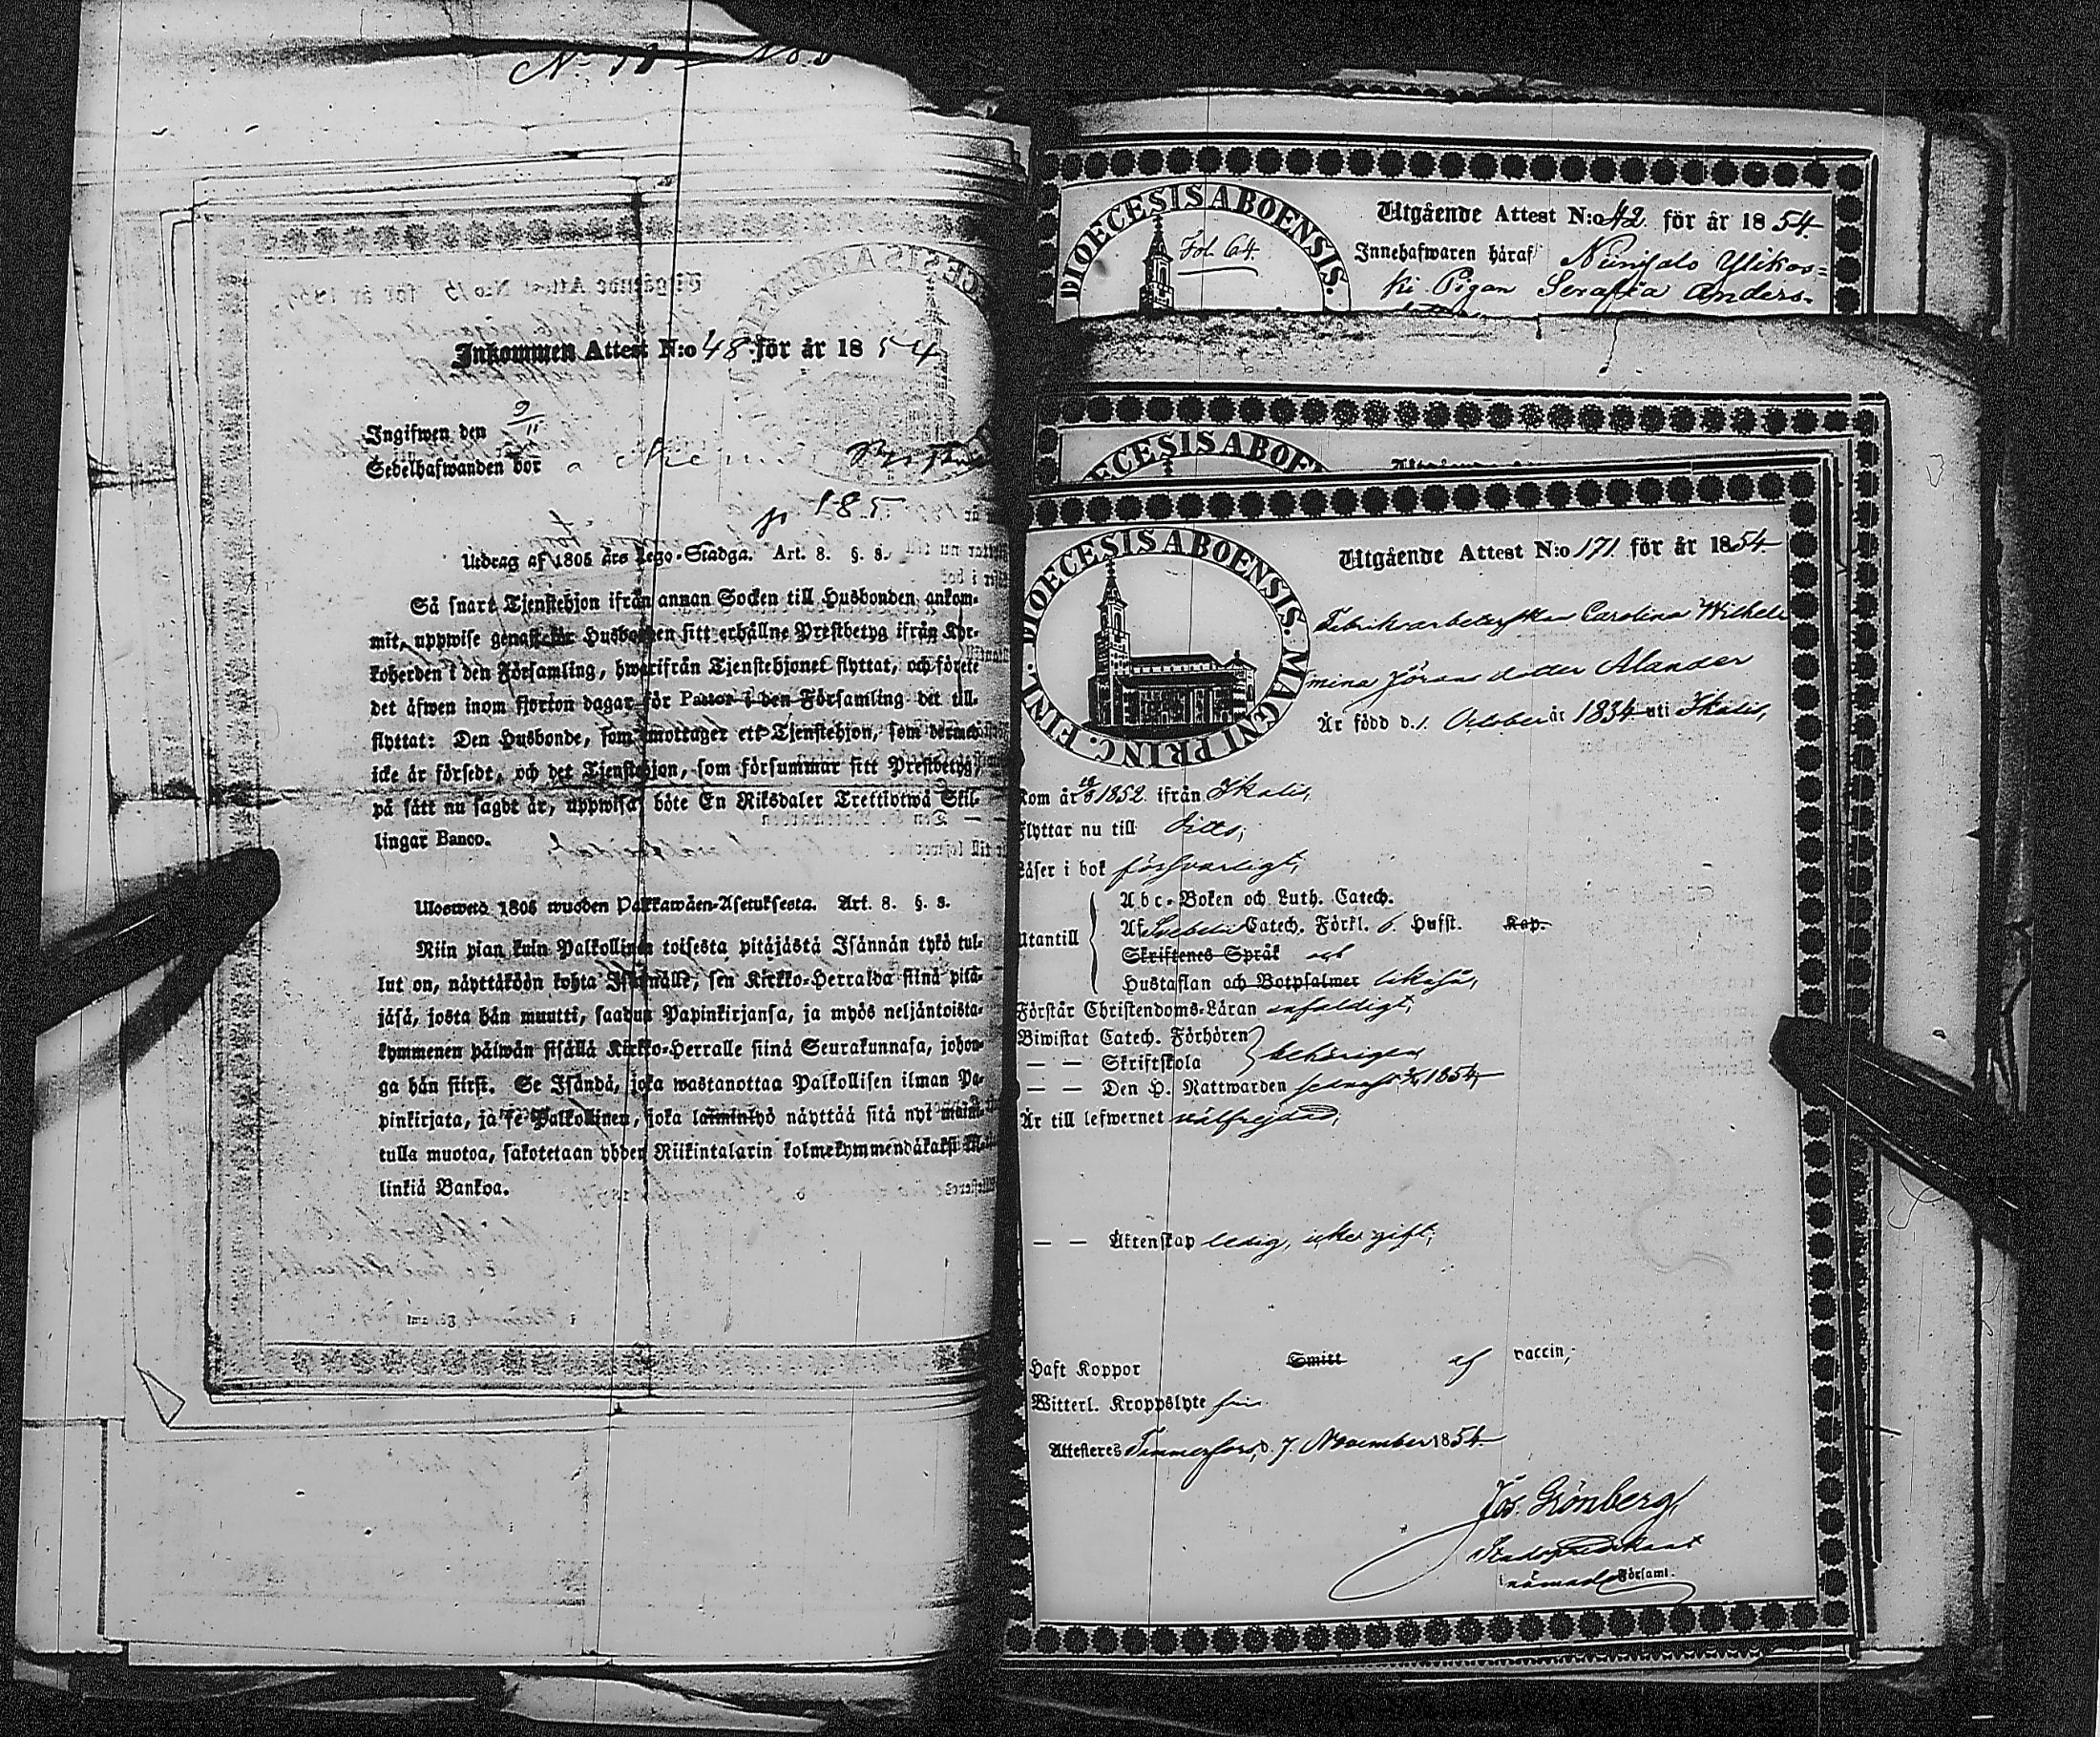 Inkommen Attest N:o 48 för år 1854
Ingifwen den 9/11
Sedelhafwanden bor
p 185
Utdrag af 1805 års Lego-Stadga. Art. 8. §. 8.
Så snart Tjenstehjon ifrån annan Socken till Husbonden ankom-
mit, uppwise genast för Husbonden sitt erhållne Prestbetyg ifrån Kyr-
koherden i den Församling, hwarifrån Tjenstehjonet flyttat, och förete
det äfwen inom fjorton dagar för Pastor i den Församling det till-
flyttat: Den Husbonde, som emottager ett Tjenstehjon, som dermed
icke är försedt, och det Tjenstehjon, som försummar sitt Prestbetyg,
på sätt nu sagdt är, uppwisa, böte En Riksdaler Trettiotwå Skil-
lingar Banco.
Uloswetö 1805 wuoden Palkawäen-Asetuksesta. Art. 8. §. 8.
Niin pian kuin Palkollinen toisesta pitäjästä Isännän tykö tul-
lut on, näyttäköön kohta Isännälle, sen Kirkko-Herralda siinä pitä-
jäsä, josta hän muutti, saadun Papinkirjansa, ja myös neljäntoista-
kymmenen päiwän sisällä Kirkko-Herralle siinä Seurakunnasa, johon-
ga hän siirsi. Se Isändä, joka wastanottaa Palkollisen ilman Pa-
pinkirjata, ja se Palkollinen, joka laiminlyö näyttää sitä nyt maini-
tulla muotoa, sakotetaan yhden Riikintalarin kolmekymmendäkaksi
linkiä Bankoa.
DIOECESIS ABOENSIS.
Fol. 64.
Utgående Attest N:o 42 för år 1854
Innehafwaren häraf
Pigan Serafia Anders-
Utgående Attest N:o 171 för år 1854
DIOECESIS ABOENSIS. MAGNI PRINC. FINL.
Fabriksarbeterskan Carolina Wilhel
mina Jöransdotter Alander
Är född d. 1. October år 1834 uti Ikalis,
Kom år 1852 ifrån Ikalis,
Flyttar nu till
Läser i bok försvarligt,
Utantill
Abc-Boken och Luth. Catech.
Af Svebelii Catech. Förkl. 6. Hufst. Kap.
Skriftenes Språk och
Hustaflan och Botpsalmer likaså,
Förstår Christendoms-Läran enfaldigt,
Biwistat Catech. Förhören
— — Skriftskola behörigen
— — Den H. Nattwarden 1854,
Är till lefwernet välfrejdad,
— — Äktenskap ledig, icke gift;
Haft Koppor Smitt af vaccin,
Witterl. Kroppslyte fri
Attesteres Tammerfors, d. 7. November 1854
Jos. Grönberg
Stadspredikant
i nämnde Församl.